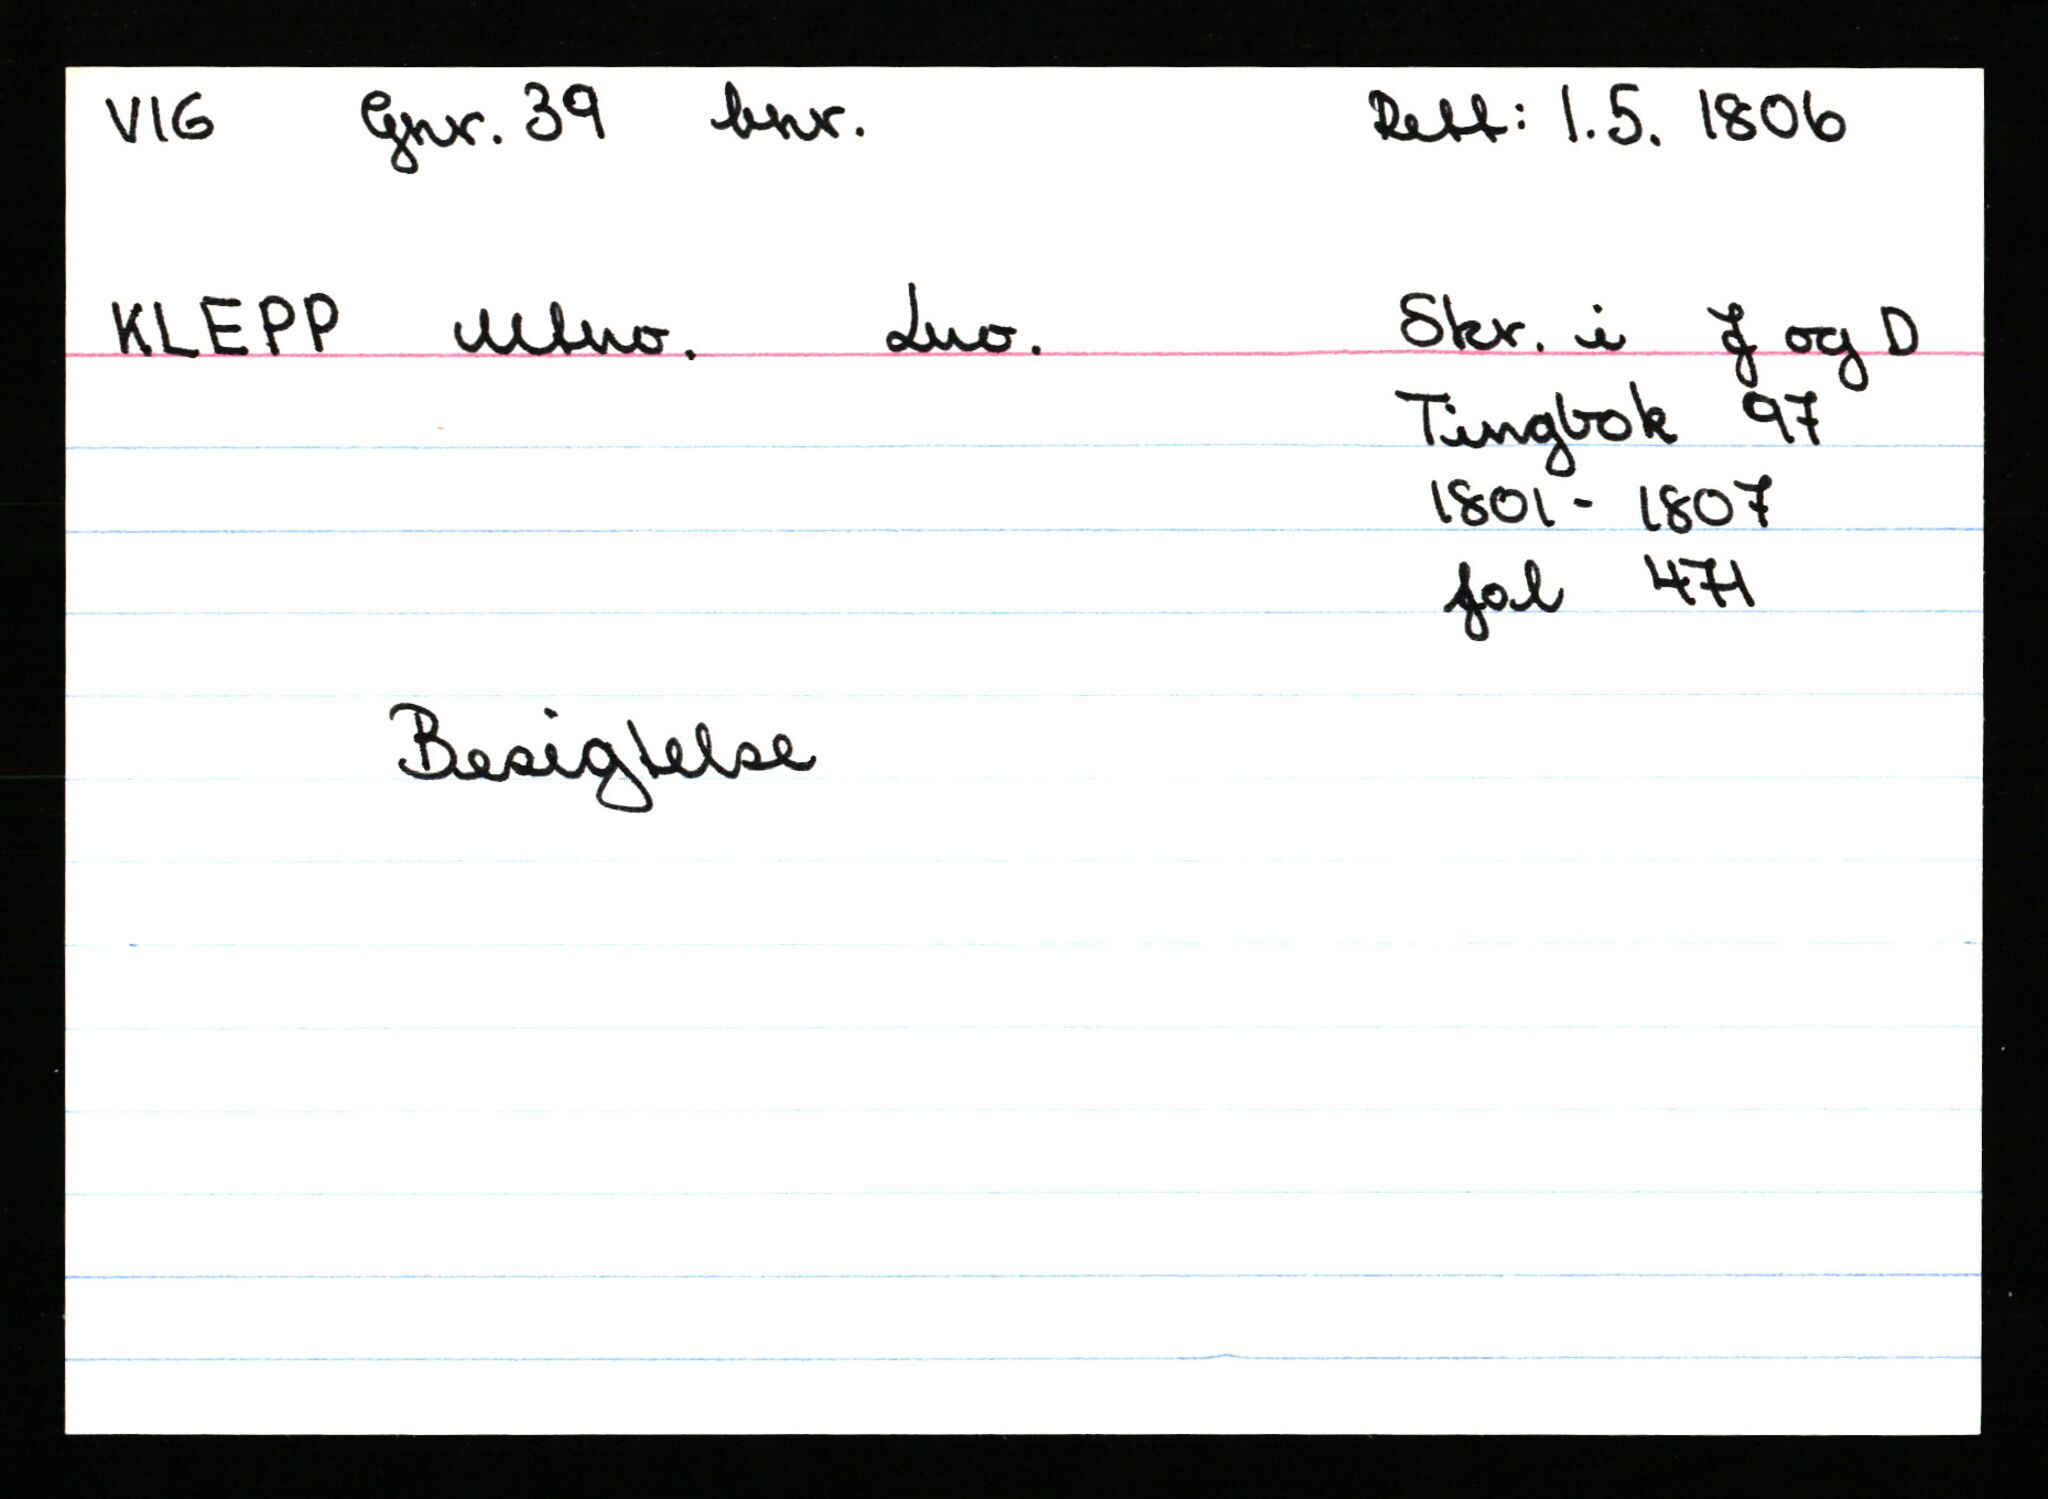 VIG Gnr. 39 bnr. Rett: 1.5. 1806
KLEPP Mtno. Lno. Skr. i J og D
Tingbok 97
1801 - 1807
fol 471
Besigtelse